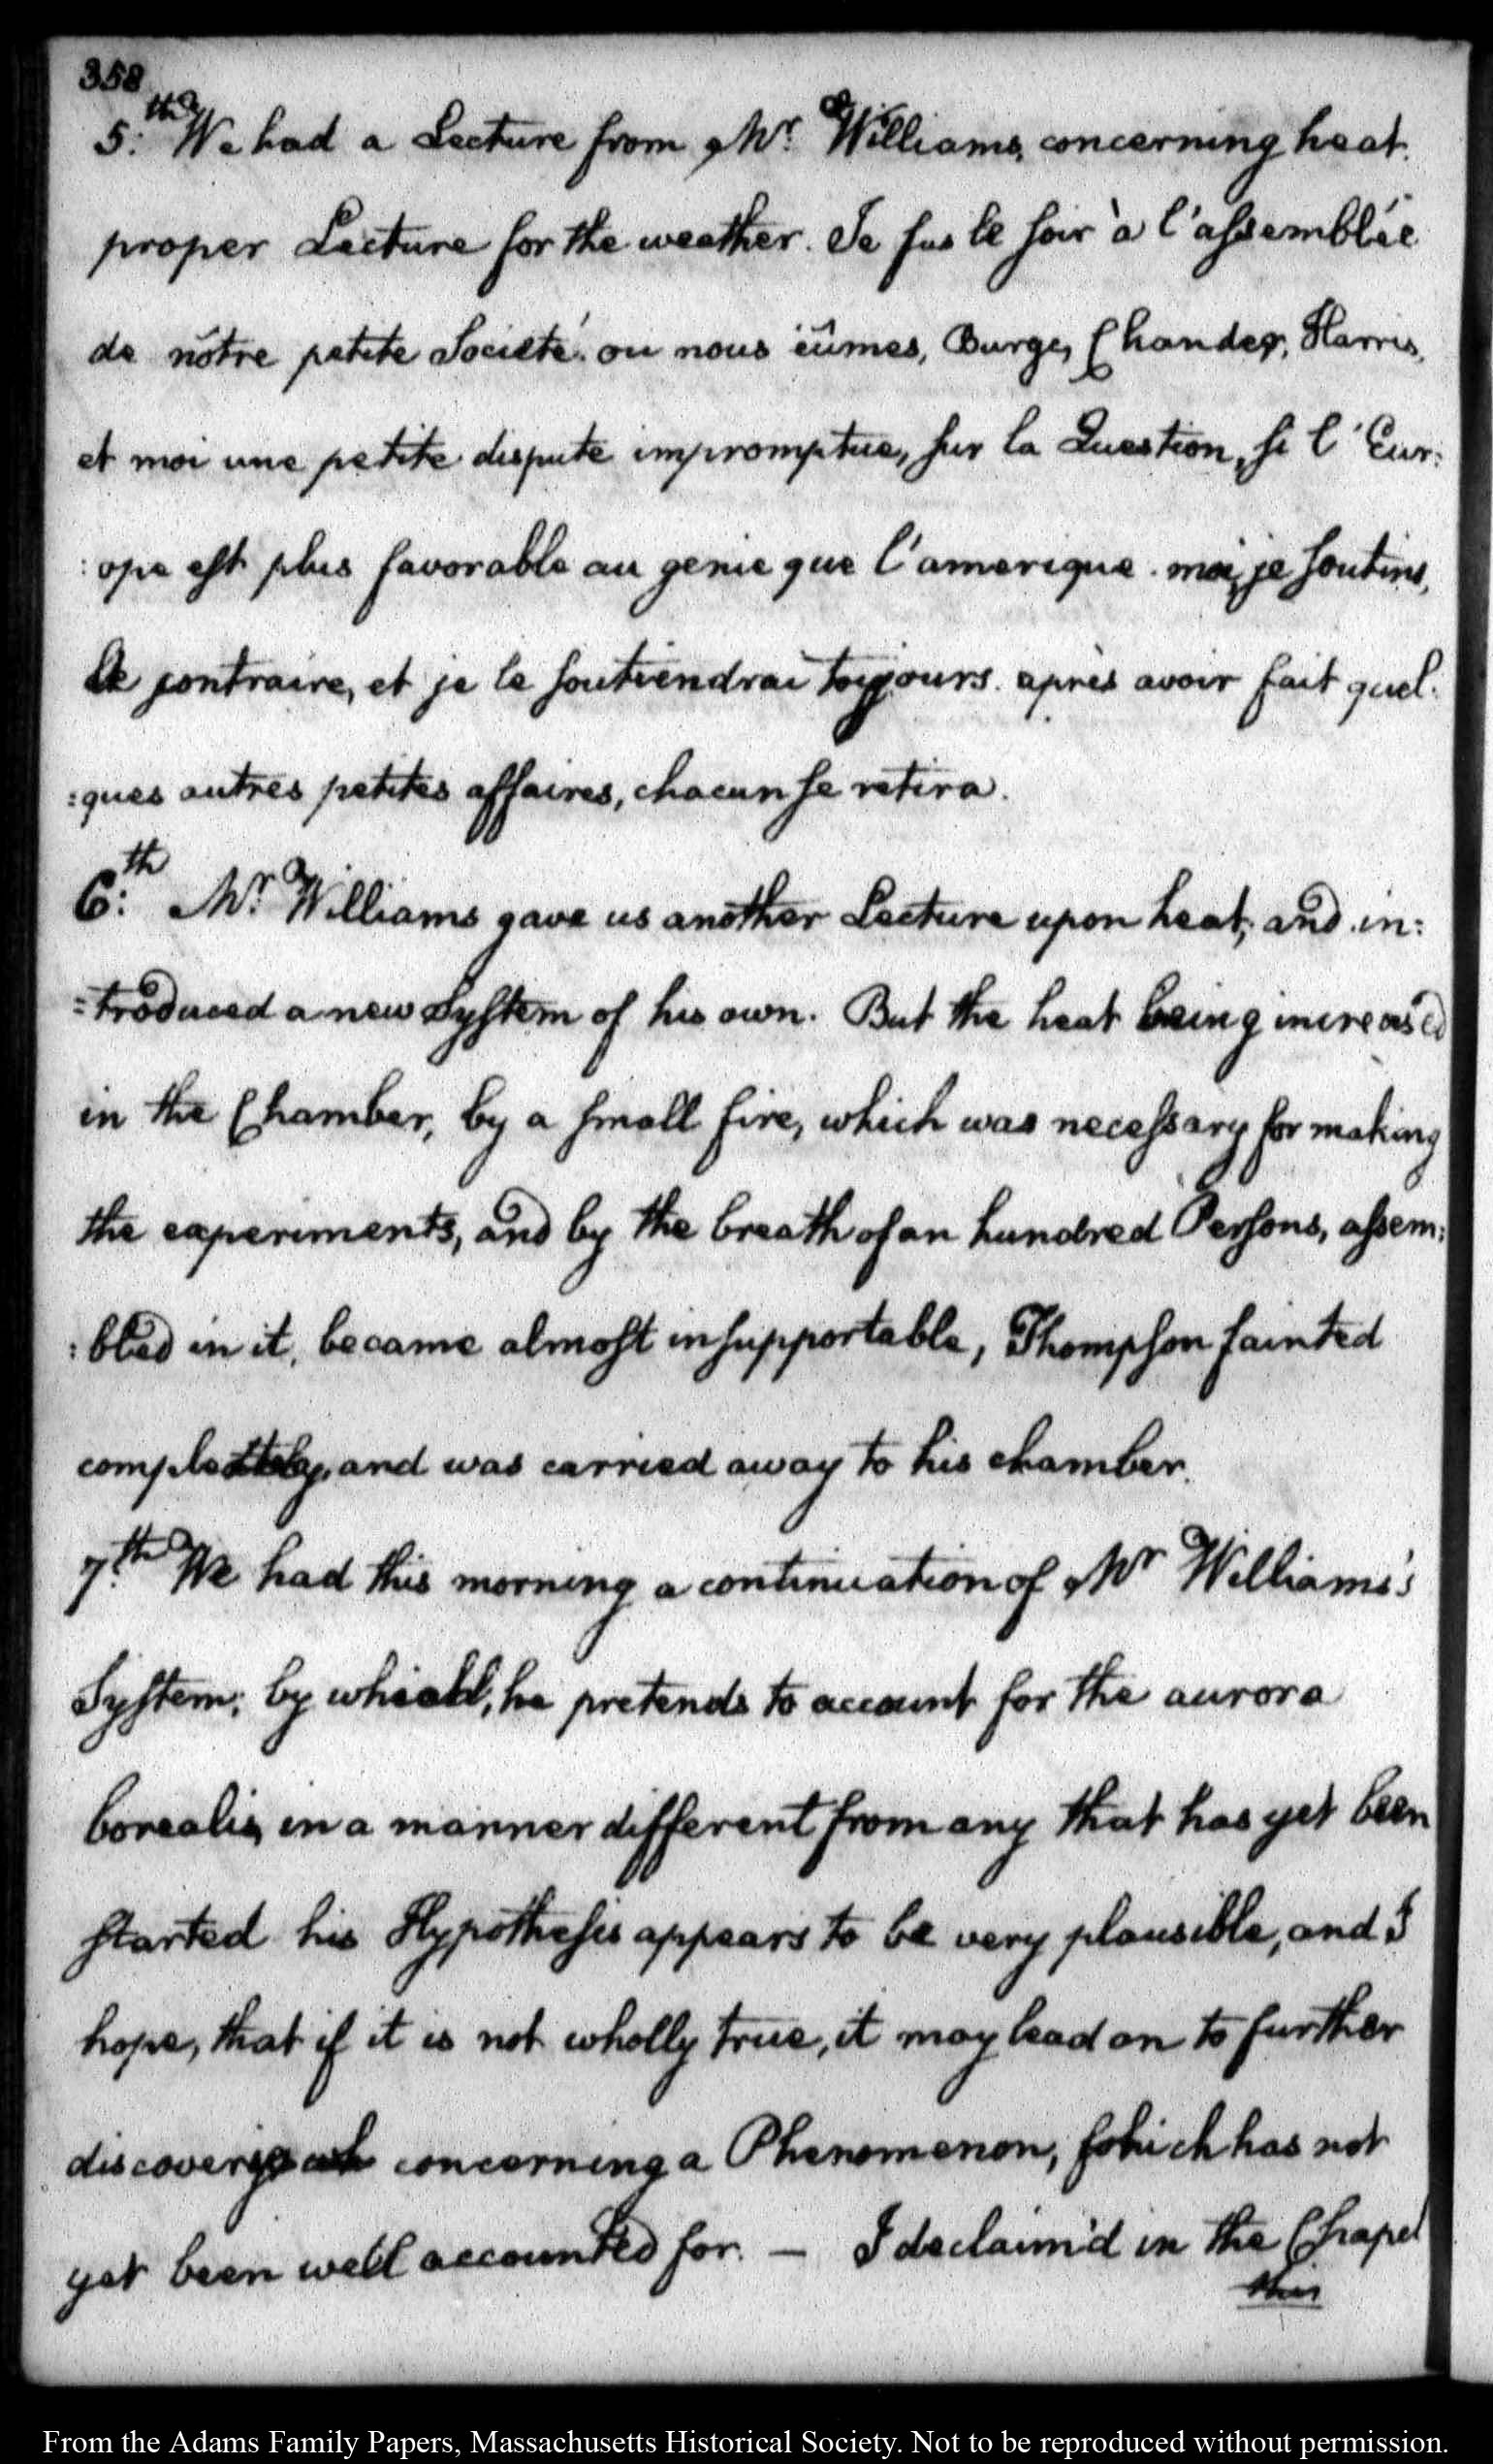 358
5:th We had a Lecture from Mr: Williams, concerning heat.
proper Lecture for the weather. Je fus le soir à l'assemblée
de nôtre petite Societé. ou nous eûmes, Burge, Chandler, Harris,
et moi une petite dispute impromptue, sur la Question, si l'Eur:
:ope est plus favorable au genie que l'amerique. moi, je soutins,
le contraire, et je le soutiendrai toujours. après avoir fait quel:
:ques autres petites affaires, chacun se retira.
6:th Mr: Williams gave us another Lecture upon heat, and in:
:troduced a new System of his own. But the heat being increased
in the Chamber, by a small fire, which was necessary for making
the experiments, and by the breath of an hundred Persons, assem:
:bled in it, became almost insupportable, Thompson fainted
completely, and was carried away to his chamber.
7:th We had this morning a continuation of Mr Williams's
System; by which, he pretends to account for the aurora
borealis, in a manner different from any that has yet been
started his Hypothesis appears to be very plausible, and I
hope, that if it is not wholly true, it may lead on to further
discoveries concerning a Phenomenon, which has not
yet been well accounted for. — I declaim'd in the Chapel
this
From the Adams Family Papers, Massachusetts Historical Society. Not to be reproduced without permission.